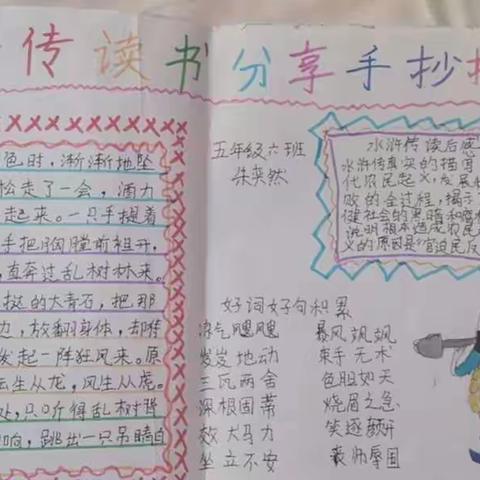 传读书分享手抄报
色时，渐渐地坠
松走了一会，酒力
起来。一只手提着
手把胸膛前袒开，
直奔过乱树林来。
挺的大青石，把那
边，放翻身体，却
发起一阵狂风来。原
云生从龙，风生从虎。
处，只听得乱树背
响，跳出一只吊睛白
五年级六班
水浒传读后感
水浒传真实的描写
代农民起义，发展
败的全过程，揭示
健社会的黑暗和
说明根本造成农民
义的原因是"官迫民反
好词好句积累
凉气飕飕
暴风飒飒
岌岌地动
束手无术
三瓦两舍
色胆如天
深根固蒂
烧眉之急
效犬马力
笑逐颜开
坐立不安
丧师辱国